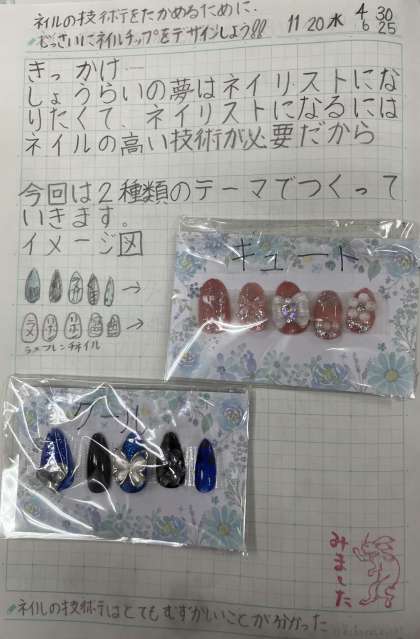 ネイルの技術をたかめるために、
じっさいにネイルチップをデザインしよう!! 11/20 水 4:30 6:25
きっかけ…
しょうらいの夢はネイリストにな
りたくて、ネイリストになるには
ネイルの高い技術が必要だから
今回は2種類のテーマでつくって
いきます。
イメージ図
キュート
→
→
ラメフレンチネイル
クール
みました
ネイルの技術はとてもむずかしいことが分かった